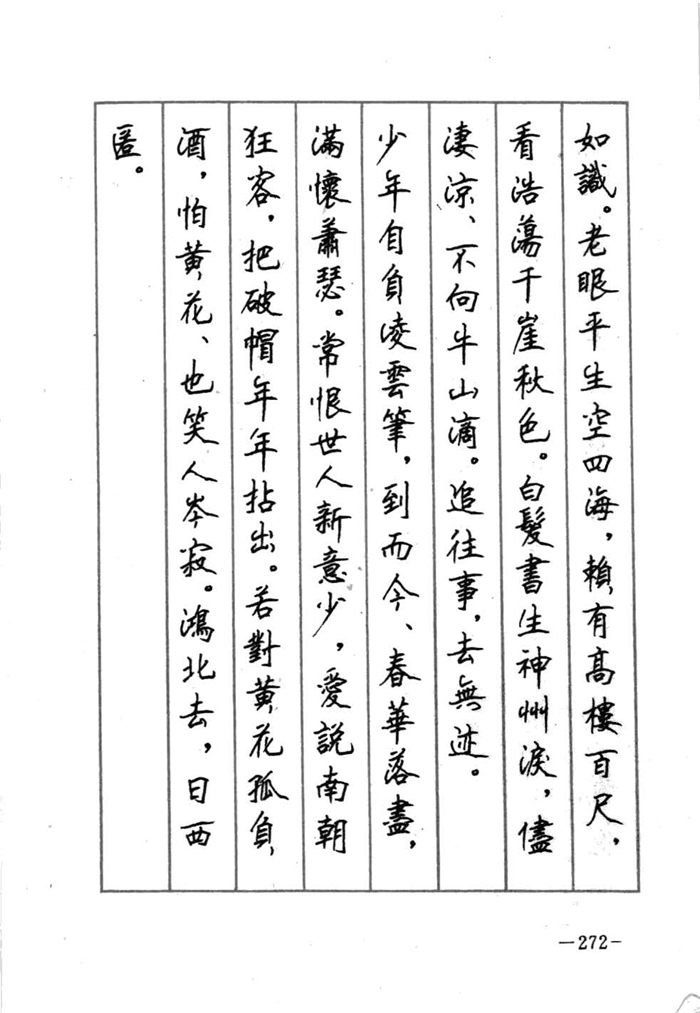 如識。老眼平生空四海，賴有高樓百尺，
看浩蕩千崖秋色。白髮書生神州淚，儘
淒涼、不向牛山滴。追往事，去無迹。
少年自負凌雲筆，到而今、春華落盡，
滿懷蕭瑟。常恨世人新意少，愛説南朝
狂客，把破帽年年拈出。若對黃花孤負
酒，怕黃花、也笑人岑寂。鴻北去，日西
匿。
—272-